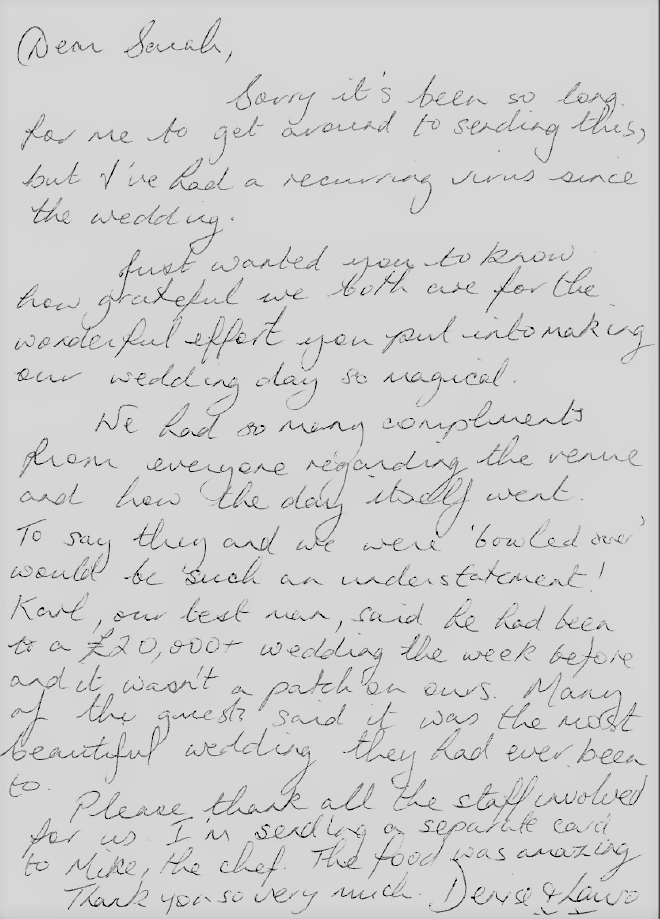 Dear Sarah,
Sorry it's been so long
for me to get around to sending this,
but I've had a recurring virus since
the wedding.
Just wanted you to know
how grateful we both are for the
wonderful effort you put into making
our wedding day so magical.
We had so many compliments
from everyone regarding the venue
and how the day itself went.
To say they and we were 'bowled over'
would be such an understatement!
Karl, our best man, said he had been
to a £20,000+ wedding the week before
and it wasn't a patch on ours. Many
of the guests said it was the most
beautiful wedding they had ever been
to.
Please thank all the staff involved
for us. I'm sending a separate card
to Mike, the chef. The food was amazing
Thank you so very much. Denise &